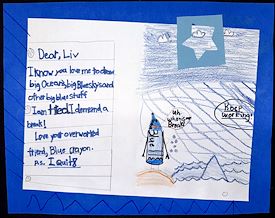 Dear, Liv
I know you love me to draw
big Oceans, big Blueskys and
other big blue stuff.
I am tired I demand a
break!
Love your overworked
friend, Blue Crayon.
P.S. I Quit!
Blue
Keep
working!